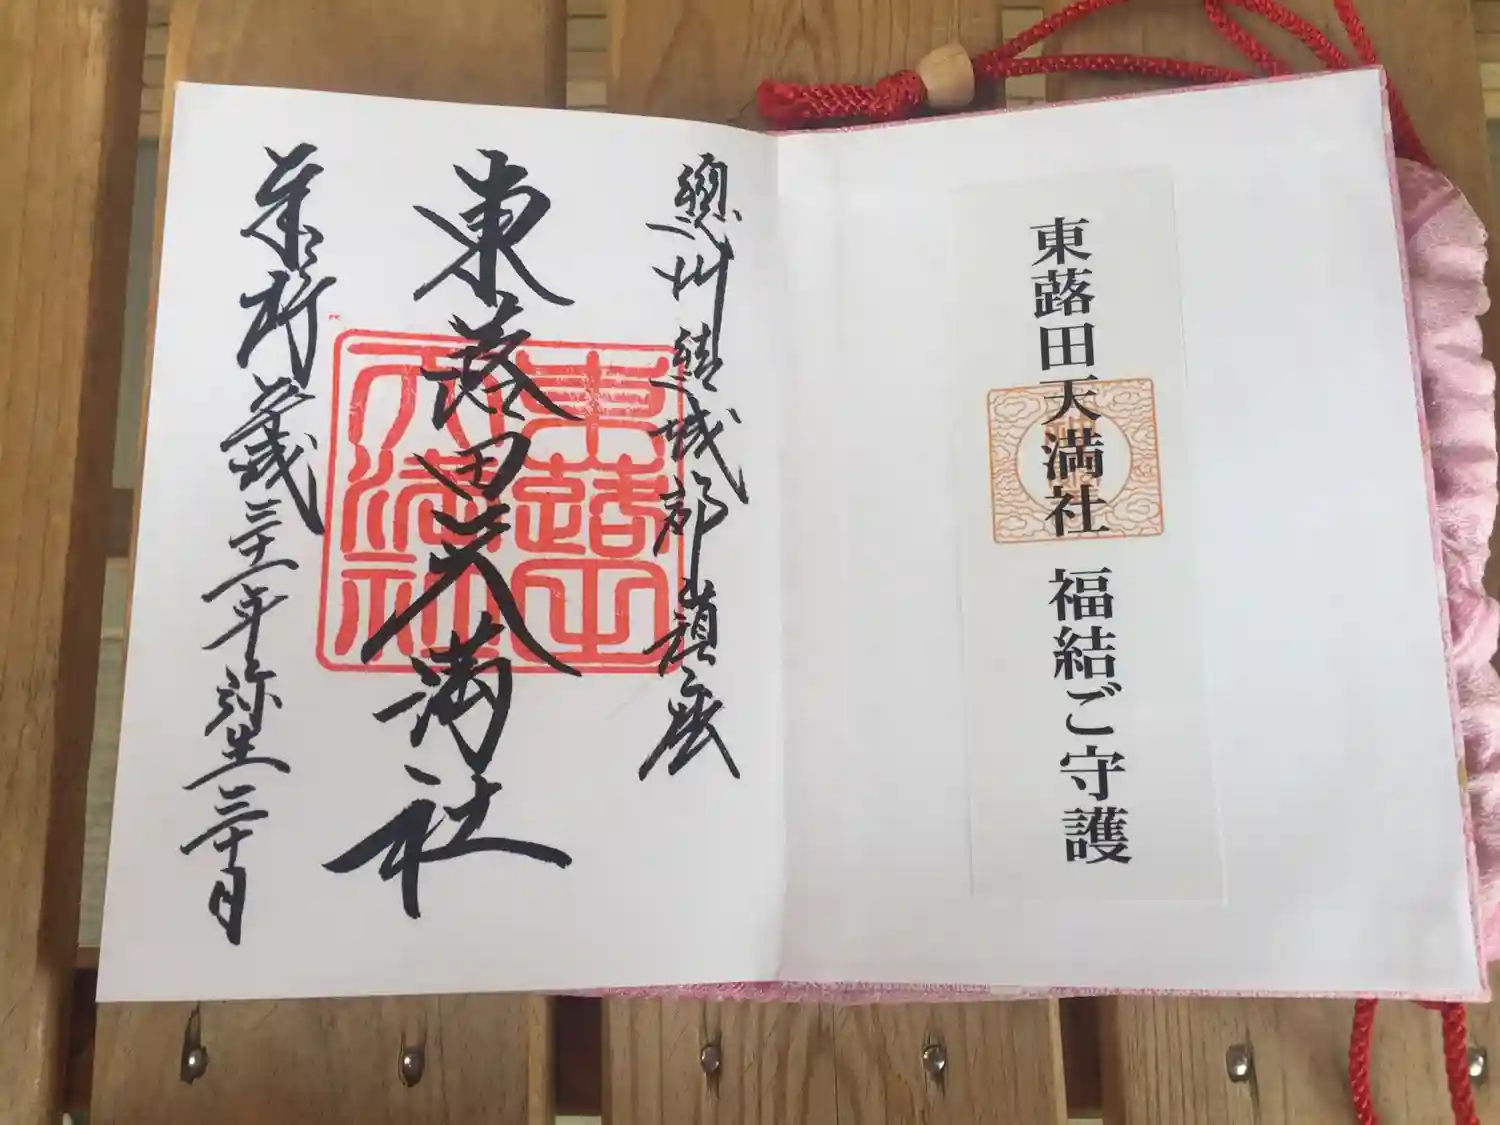 東蕗田天満社 福結ご守護
總州結城郡鎮座
東蕗田天満社
東蕗田
天満社
三十一年弥生三十日